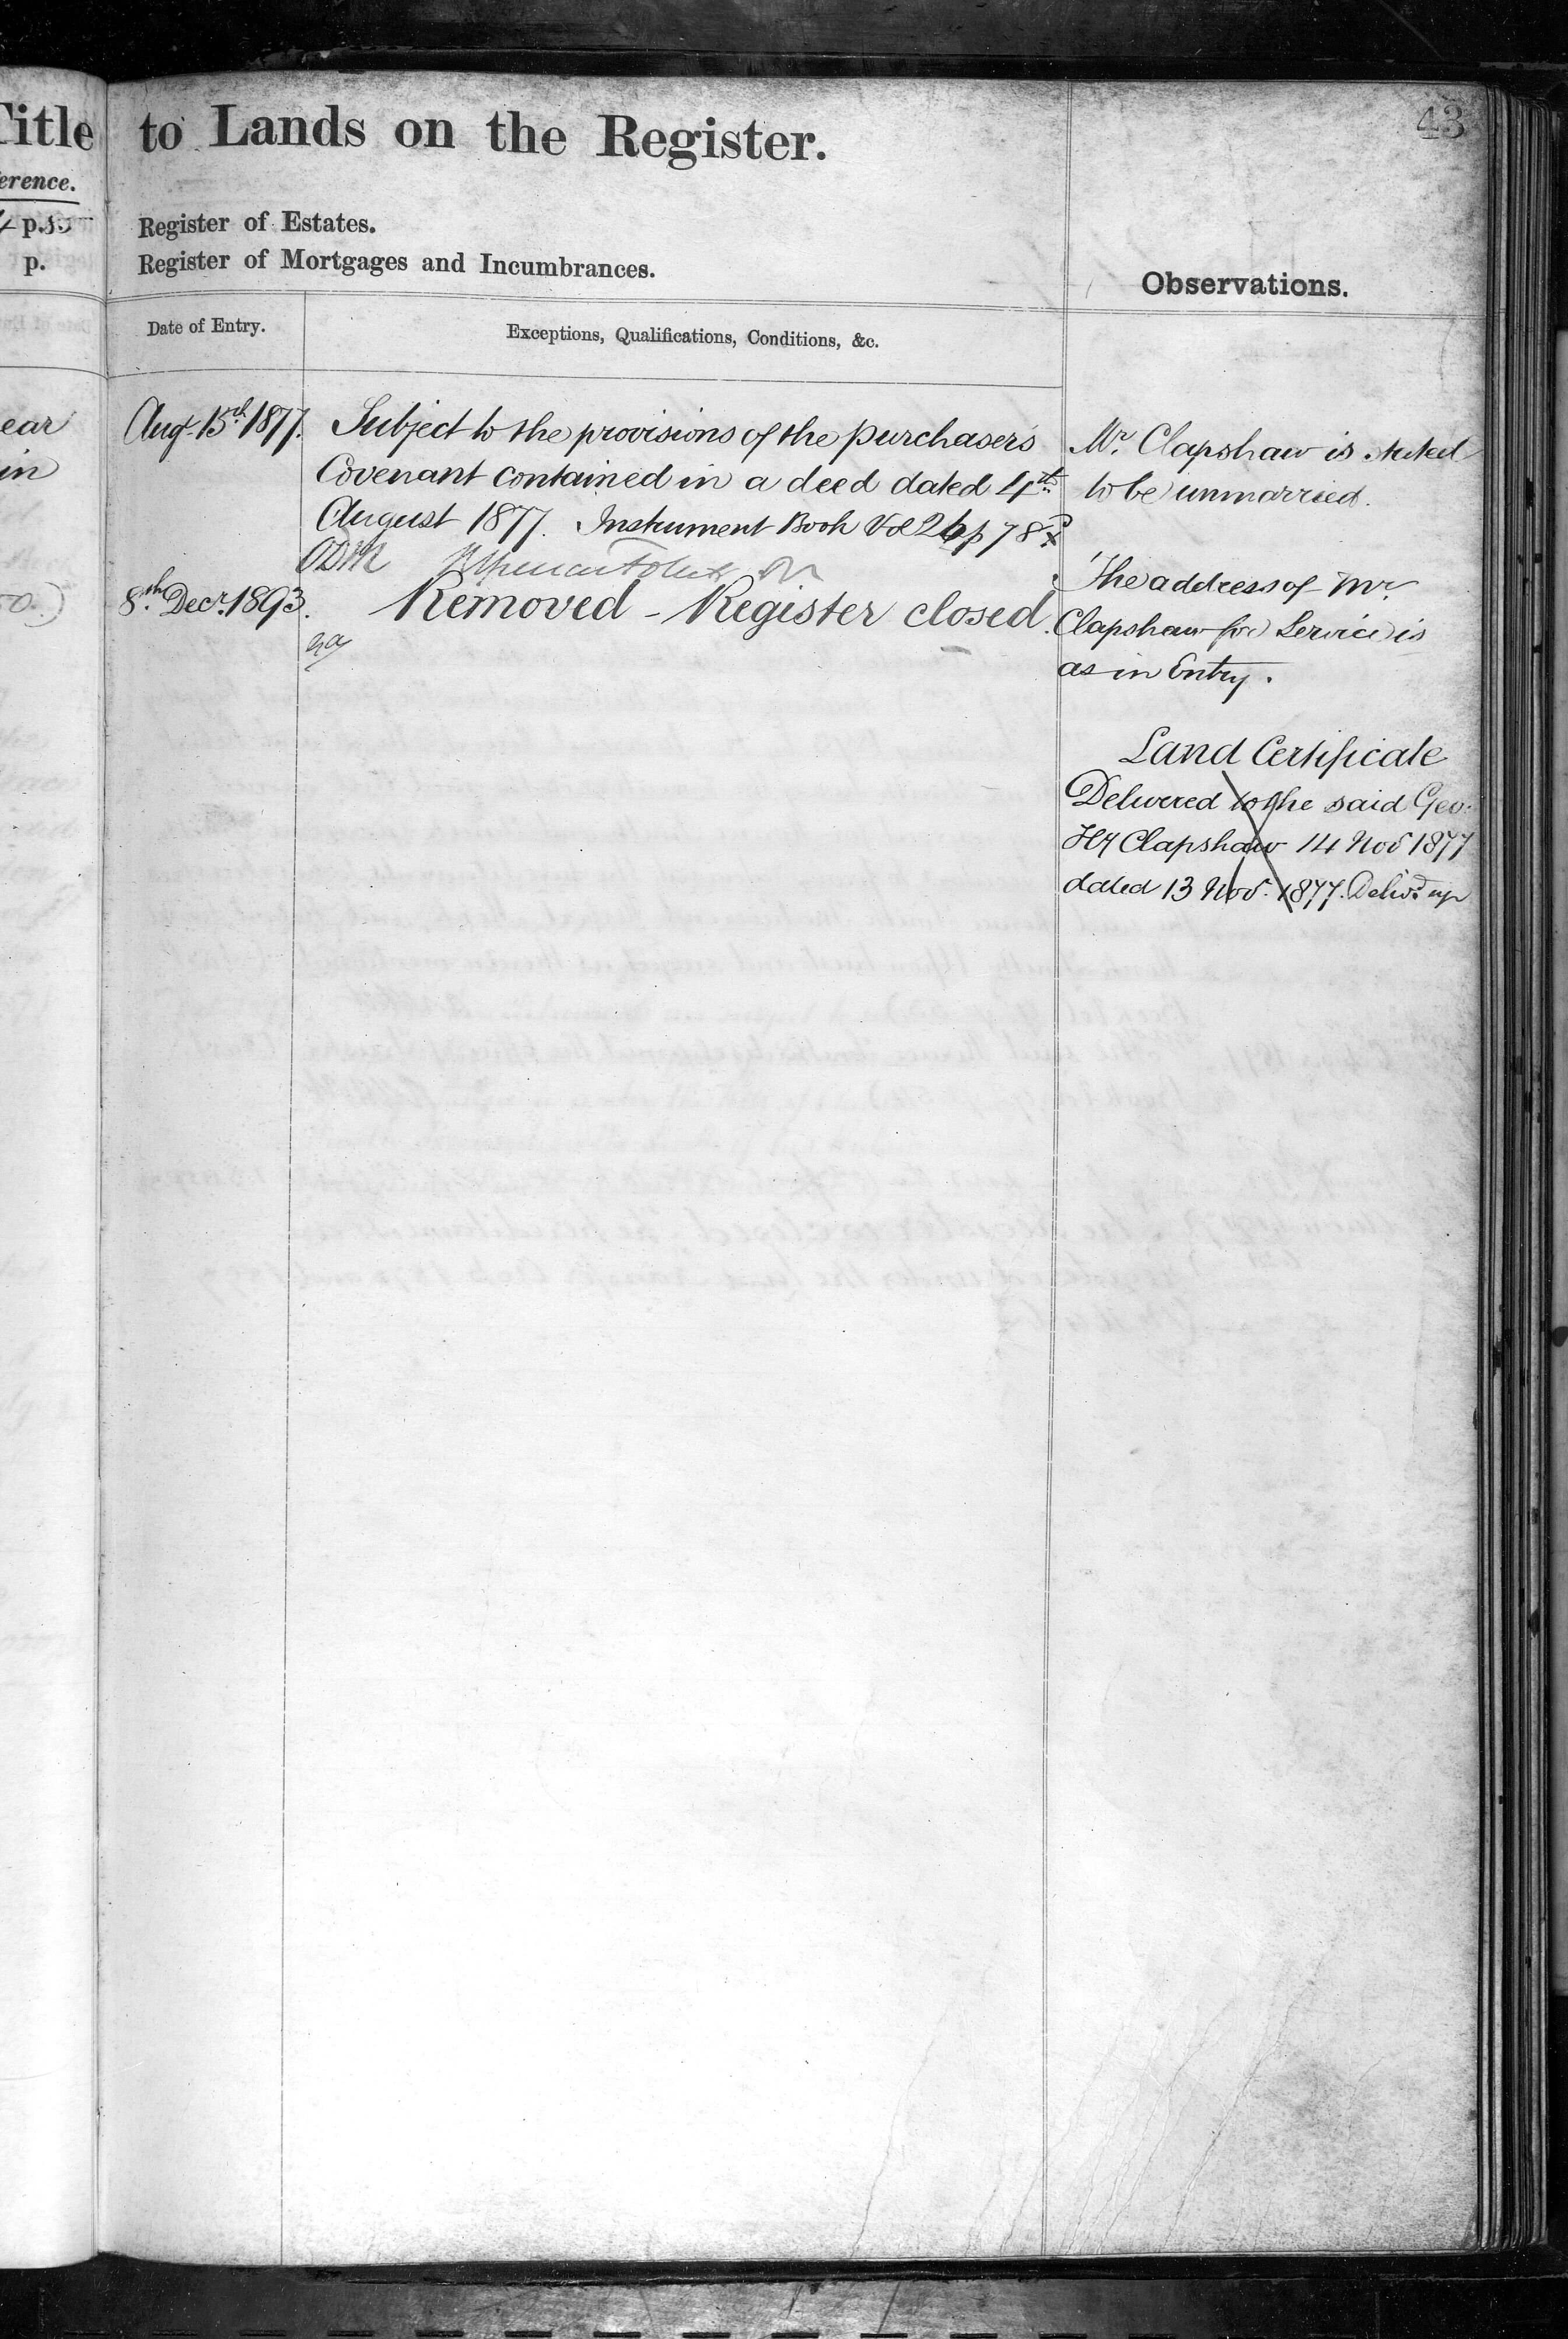 43
Title to Lands on the Register.
erence.
p.
p.
Register of Estates.
Register of Mortgages and Incumbrances.
Observations.
Date of Entry.
Exceptions, Qualifications, Conditions, &c.
ear
in
Aug. 15th 1877. Subject to the provisions of the purchasers
Covenant contained in a deed dated 4th
August 1877. Instrument Book Vol 26 p 78
ODM
8th Decr. 1893. Removed - Register closed.
Mr. Clapshaw is stated
to be unmarried.
The address of Mr.
Clapshaw for Service is
as in Entry.
Land Certificate
Delivered to the said Geo.
Hy Clapshaw 14 Nov 1877
dated 13 Nov. 1877. Delivd. up